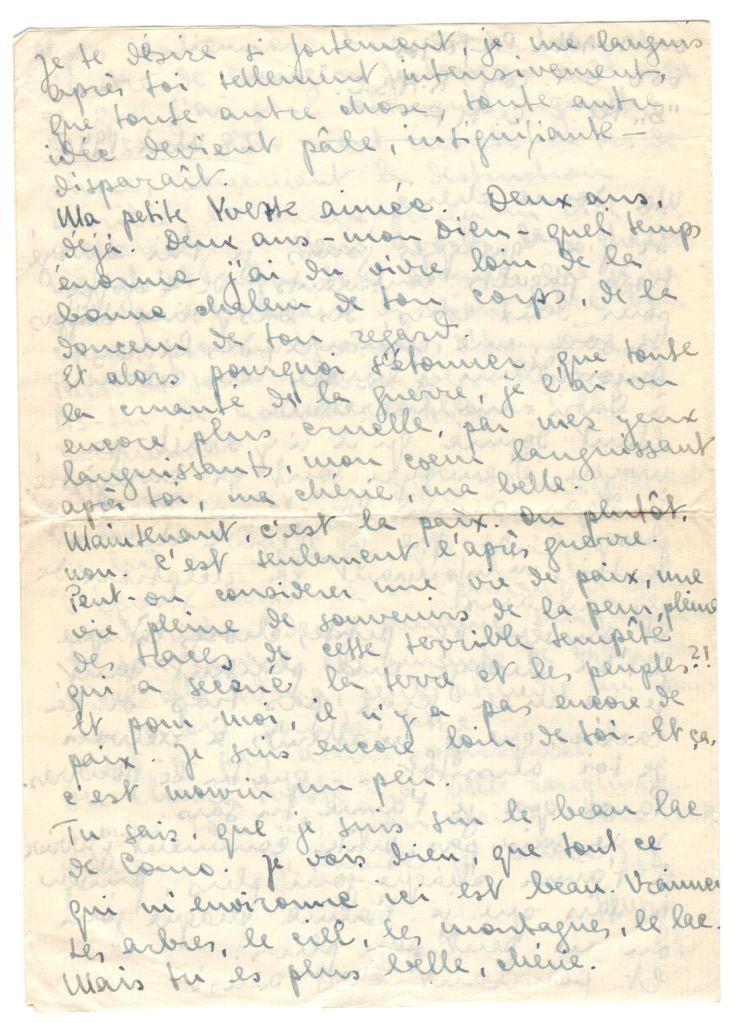 Je te désire si fortement, je me languis
après toi tellement intensivement,
que toute autre chose, toute autre
idée devient pâle, insignifiante –
disparaît
Ma petite Yvette aimée. Deux ans,
déjà. Deux ans – mon Dieu – quel temps
énorme j'ai du vivre loin de la
bonne chaleur de ton corps, de la
douceur de ton regard.
Et alors pourquoi s'étonner, que toute
la cruauté de la guerre, je l'ai vu
encore plus cruelle, par mes yeux
languissants, mon coeur languissant
après toi, ma chérie, ma belle.
Maintenant, c'est la paix. Ou plutôt,
non. C'est seulement l'après guerre.
Peut-on considerer une vie de paix, une
vie pleine de souvenirs de la peur, pleine
des traces de cette terrible tempêtê
qui a secoué la terre et les peuples?!
Et pour moi, il n'y a pas encore de
paix. Je suis encore loin de toi. Et ça,
c'est mourir un peu.
Tu sais, que je suis sur le beau lac
de Como. Je vois bien, que tout ce
qui m'environne ici est beau. Vraiment
Les arbres, le ciel, les montagnes, le lac.
Mais tu es plus belle, chérie.